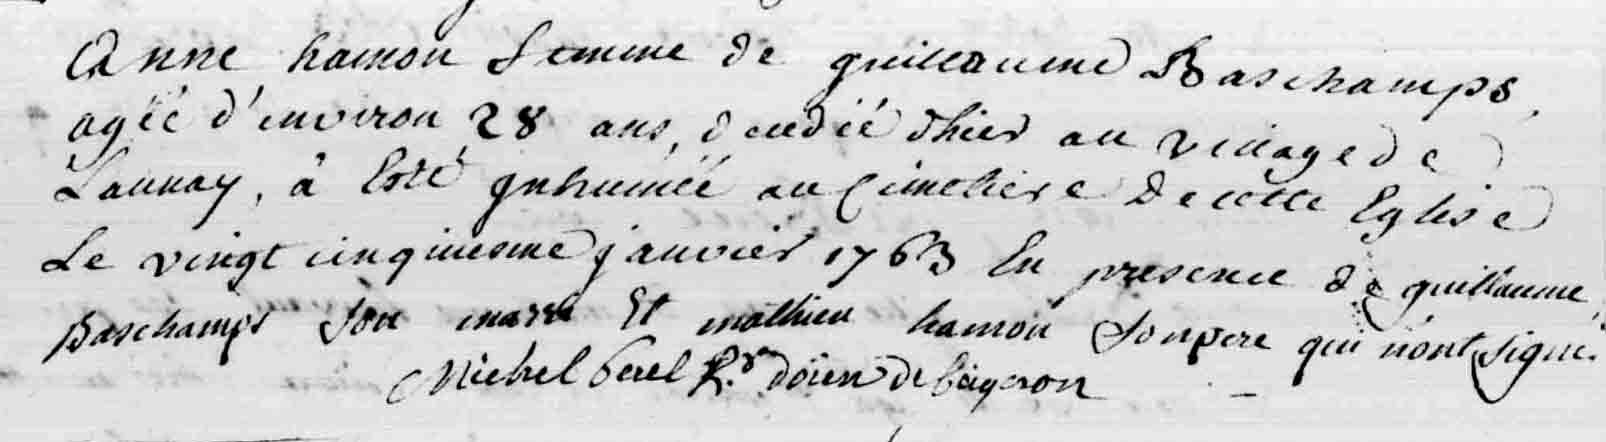 Anne hamon femme de guillaume Baschamps,
agéé d'environ 28 ans, decedéé d'hier au village de
Launay, à Esté Inhuméé au Cimetiere de cette Eglise
Le vingt cinquiesme janvier 1763 En presence de guillaume
Baschamps son mary Et mathieu hamon son pere qui n'ont signé.
Michel R.r doïen de